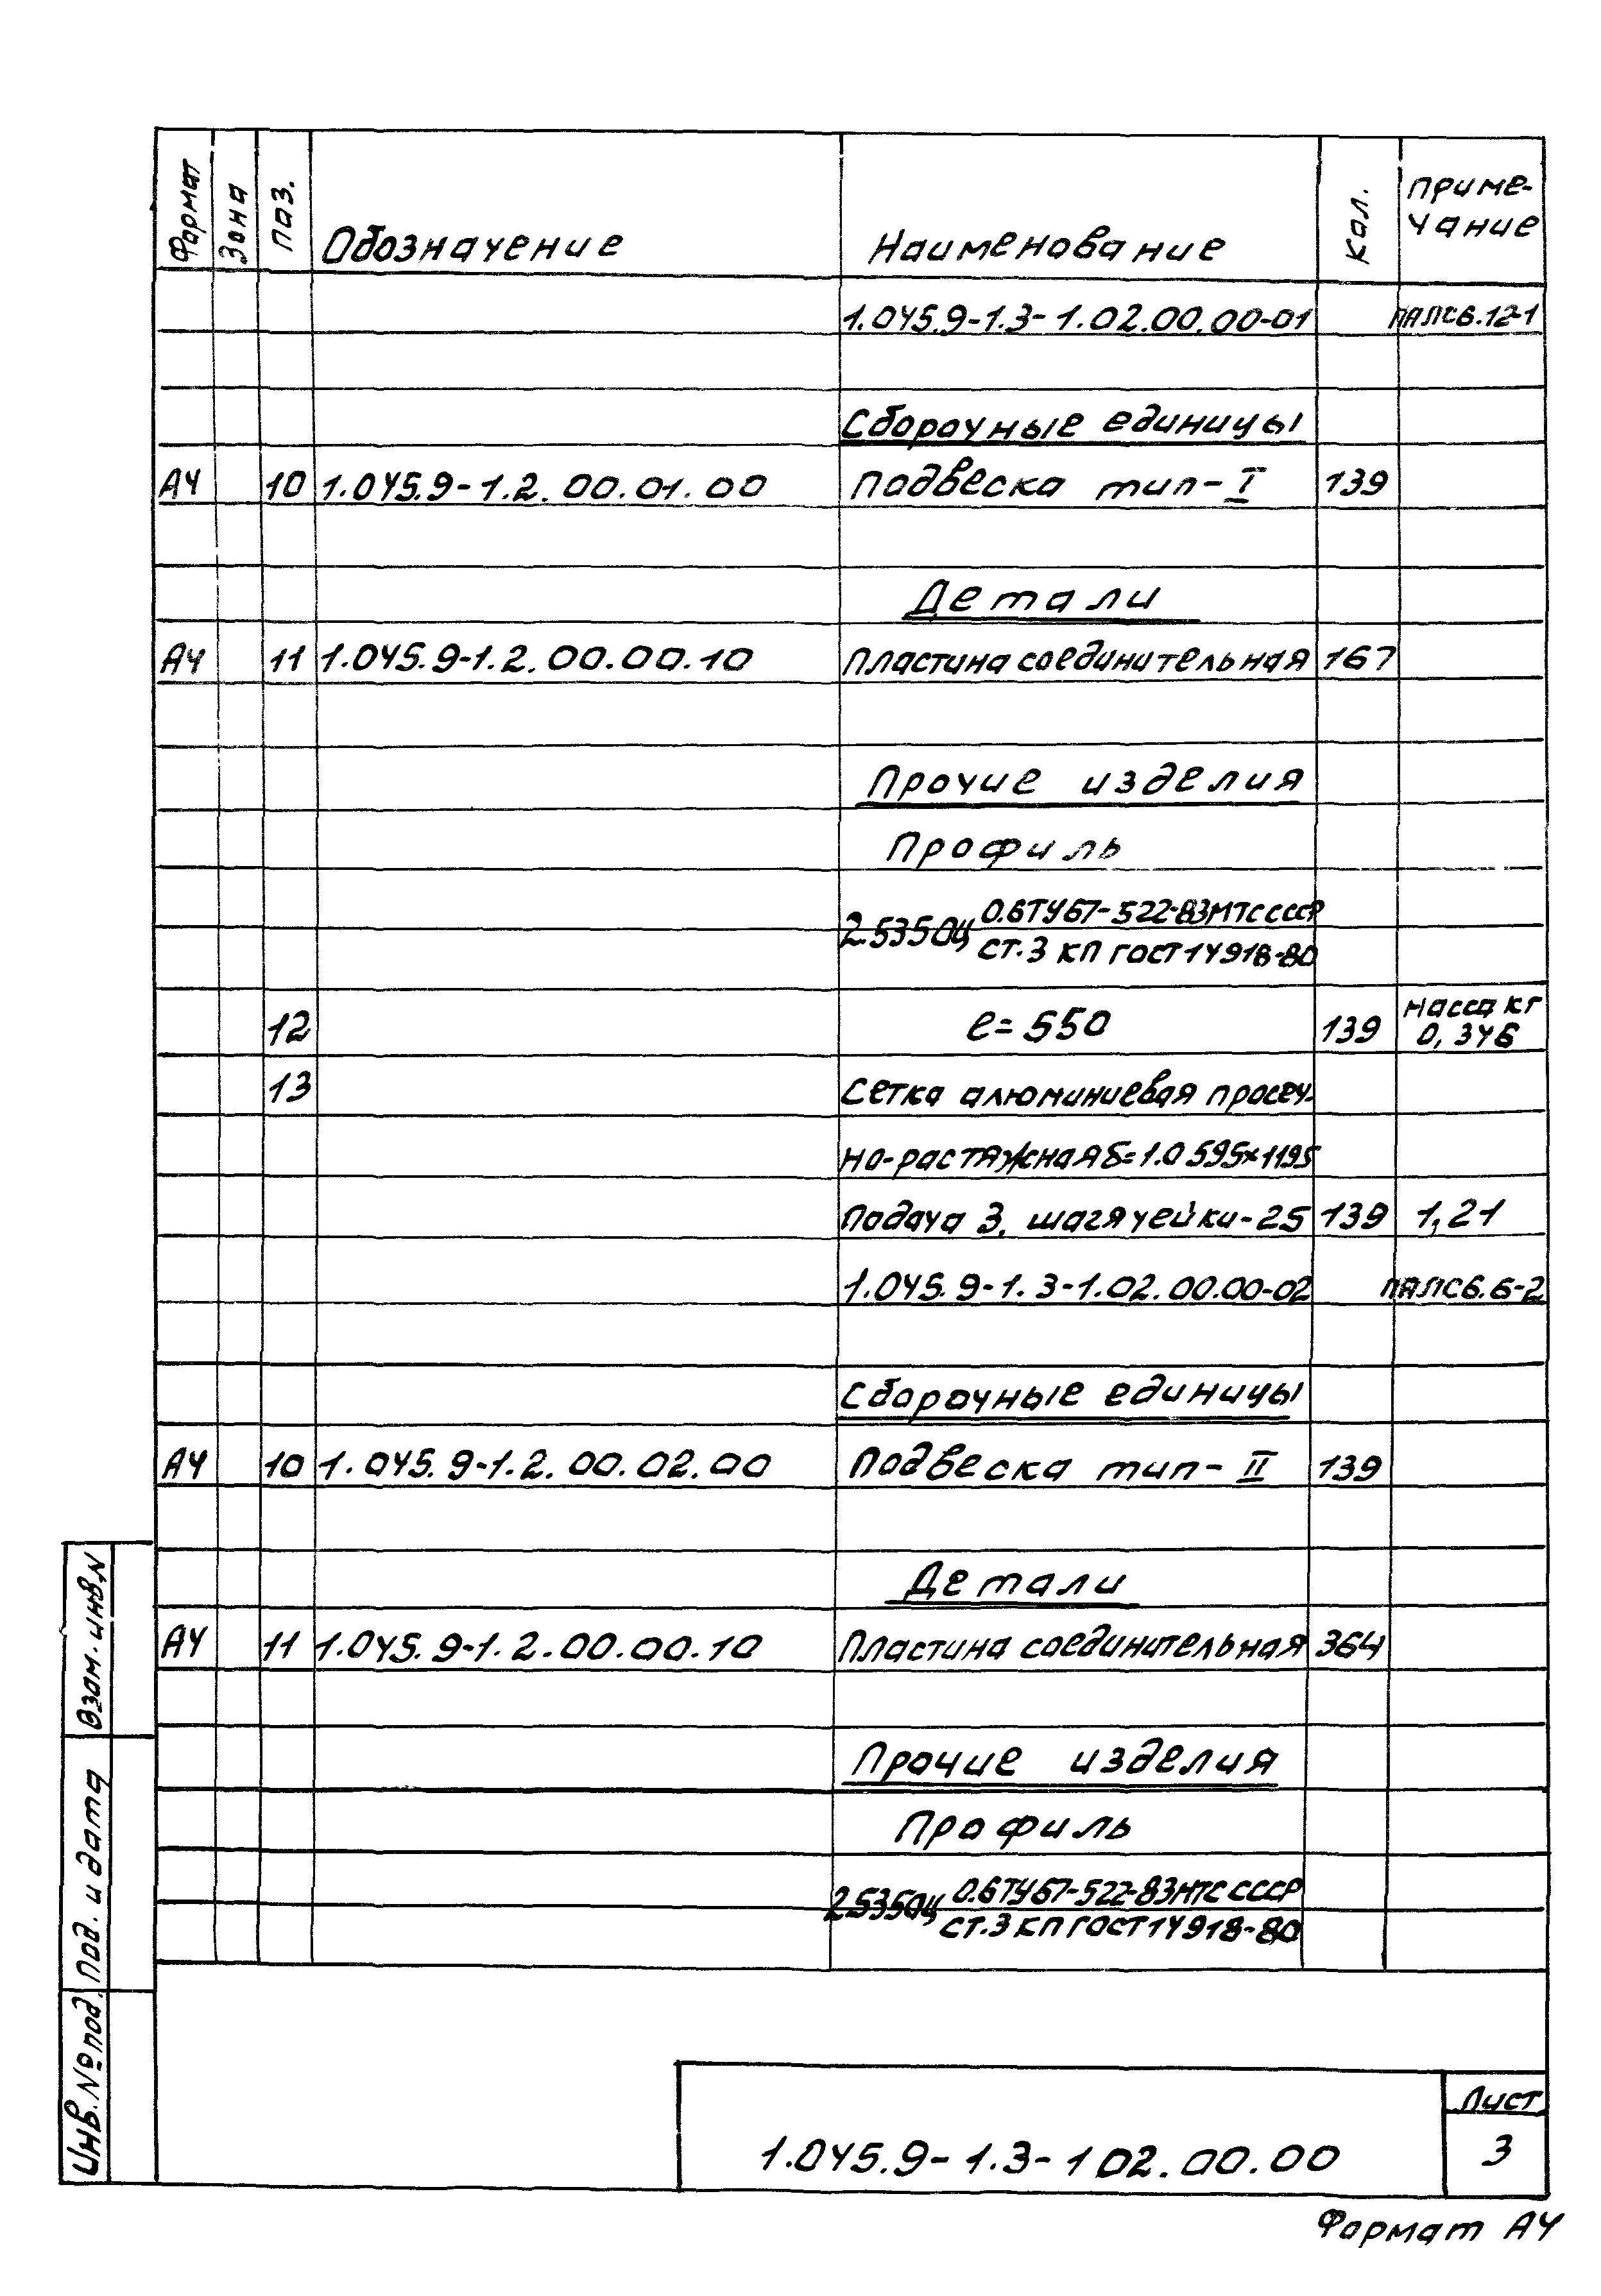 Формат Зона Поз. Обозначение Наименование Кол. Приме-
чание
1.045.9-1.3-1.02.00.00-01 ПАЛС6.12-1
Сборочные единицы
А4 10 1.045.9-1.2.00.01.00 Подвеска тип-I 139
Детали
А4 11 1.045.9-1.2.00.00.10 Пластина соединительная 167
Прочие изделия
Профиль
2.53504 0.6ТУ67-522-83МТСССР
ст.3 кп ГОСТ14918-80
12 l=550 139 Масса кг
0,346
13 Сетка алюминиевая просеч-
но-растяжная δ=1.0 595х1195
Подача 3, шаг ячейки-25 139 1,21
1.045.9-1.3-1.02.00.00-02 ПАЛС6.6-2
Сборочные единицы
А4 10 1.045.9-1.2.00.02.00 Подвеска тип-II 139
Детали
А4 11 1.045.9-1.2.00.00.10 Пластина соединительная 364
Прочие изделия
Профиль
2.53504 0.6ТУ67-522-83МТС СССР
ст.3 кп ГОСТ14918-80
Взам.инв.N
Под. и дата
Инв.№ под.
1.045.9-1.3-1 02.00.00
Лист
3
Формат А4